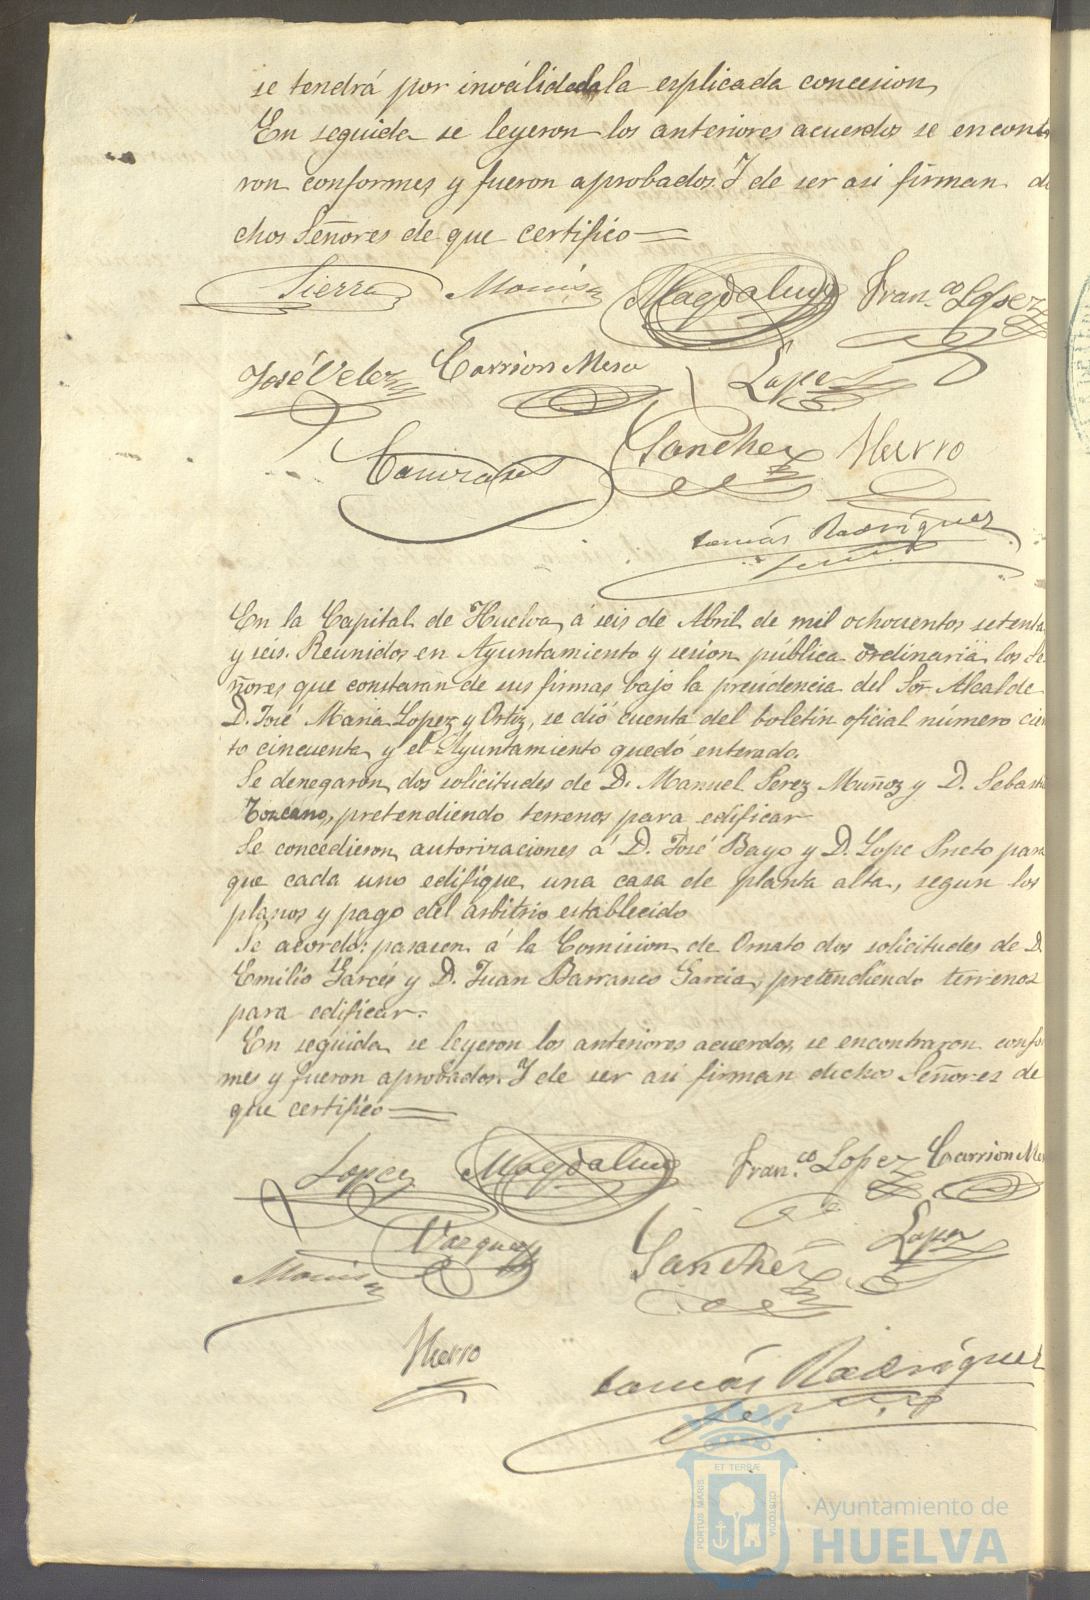 se tendrá por inválidada la esplicada concesion,
En seguida se leyeron los anteriores acuerdos se encontra
ron conformes y fueron aprobados. Y de ser asi firman di
chos Señores de que certifico=
Sierra Monis Magdaleno Fran.co Lopez
José Velez Carrion Mesa Lopez
Sanchez Hierro
tomás Rodríguez
En la Capital de Huelva, á seis de Abril de mil ochocientos setenta
y seis. Reunidos en Ayuntamiento y sesion pública ordinaria los Se
ñores que constarán de sus firmas bajo la presidencia del Sor. Alcalde
D. José Maria Lopez y Ortiz, se dió cuenta del boletin oficial número cien
to cincuenta, y el Ayuntamiento quedó enterado.
Se denegaron dos solicitudes de D. Manuel Perez Muñoz y D. Sebastn
Toscano, pretendiendo terrenos para edificar
Se concedieron autorizaciones á D. José Bayo y D. Lope Prieto para
que cada uno edifique una casa de planta alta, segun los
planos y pago del arbitrio establecido
Se acordó: pasasen á la Comision de Ornato dos solicitudes de D.
Emilio Garces y D. Juan Barranco Garcia, pretendiendo terrenos
para edificar.
En seguida se leyeron los anteriores acuerdos, se encontraron confor
mes y fueron aprobados. Y de ser asi firman dichos Señores de
que certifico=
Lopez Magdaleno Fran.co Lopez Carrion Me
Vazquez Lopez
Monis Sanchez
Hierro
tomás Rodríguez
PORTUS MARIS ET TERRÆ CUSTODIA
Ayuntamiento de
HUELVA